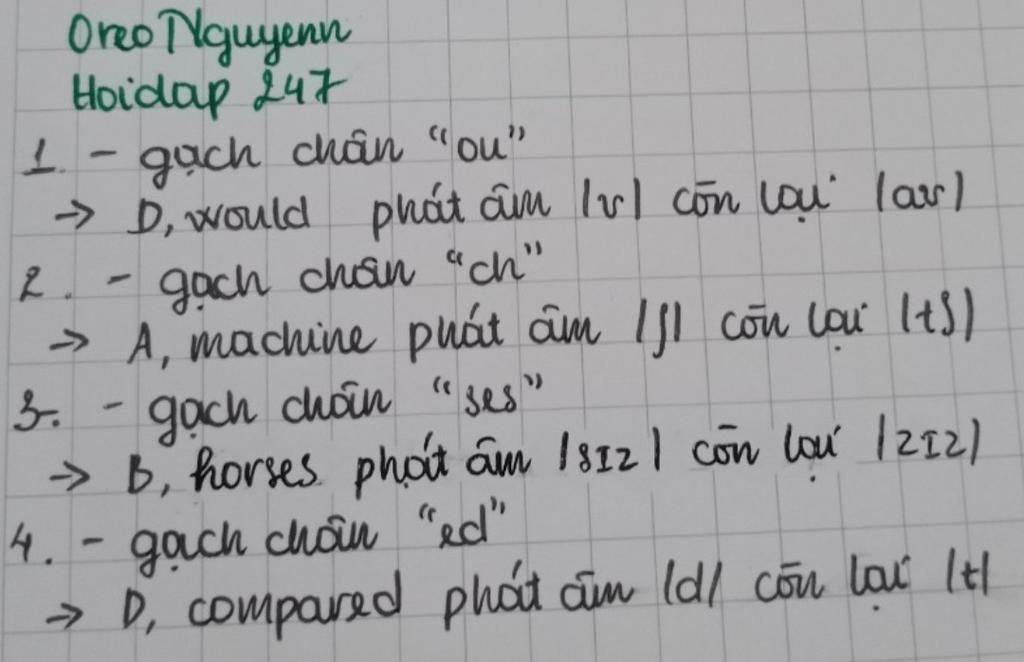 Oreo Nguyenn
Hoidap 247
1. - gạch chân "ou"
→ D, would phát âm |ʊ| còn lại |aʊ|
2. - gạch chân "ch"
→ A, machine phát âm |ʃ| còn lại |tʃ|
3. - gạch chân "ses"
→ B, horses phát âm |sɪz| còn lại |zɪz|
4. - gạch chân "ed"
→ D, compared phát âm |d| còn lại |t|